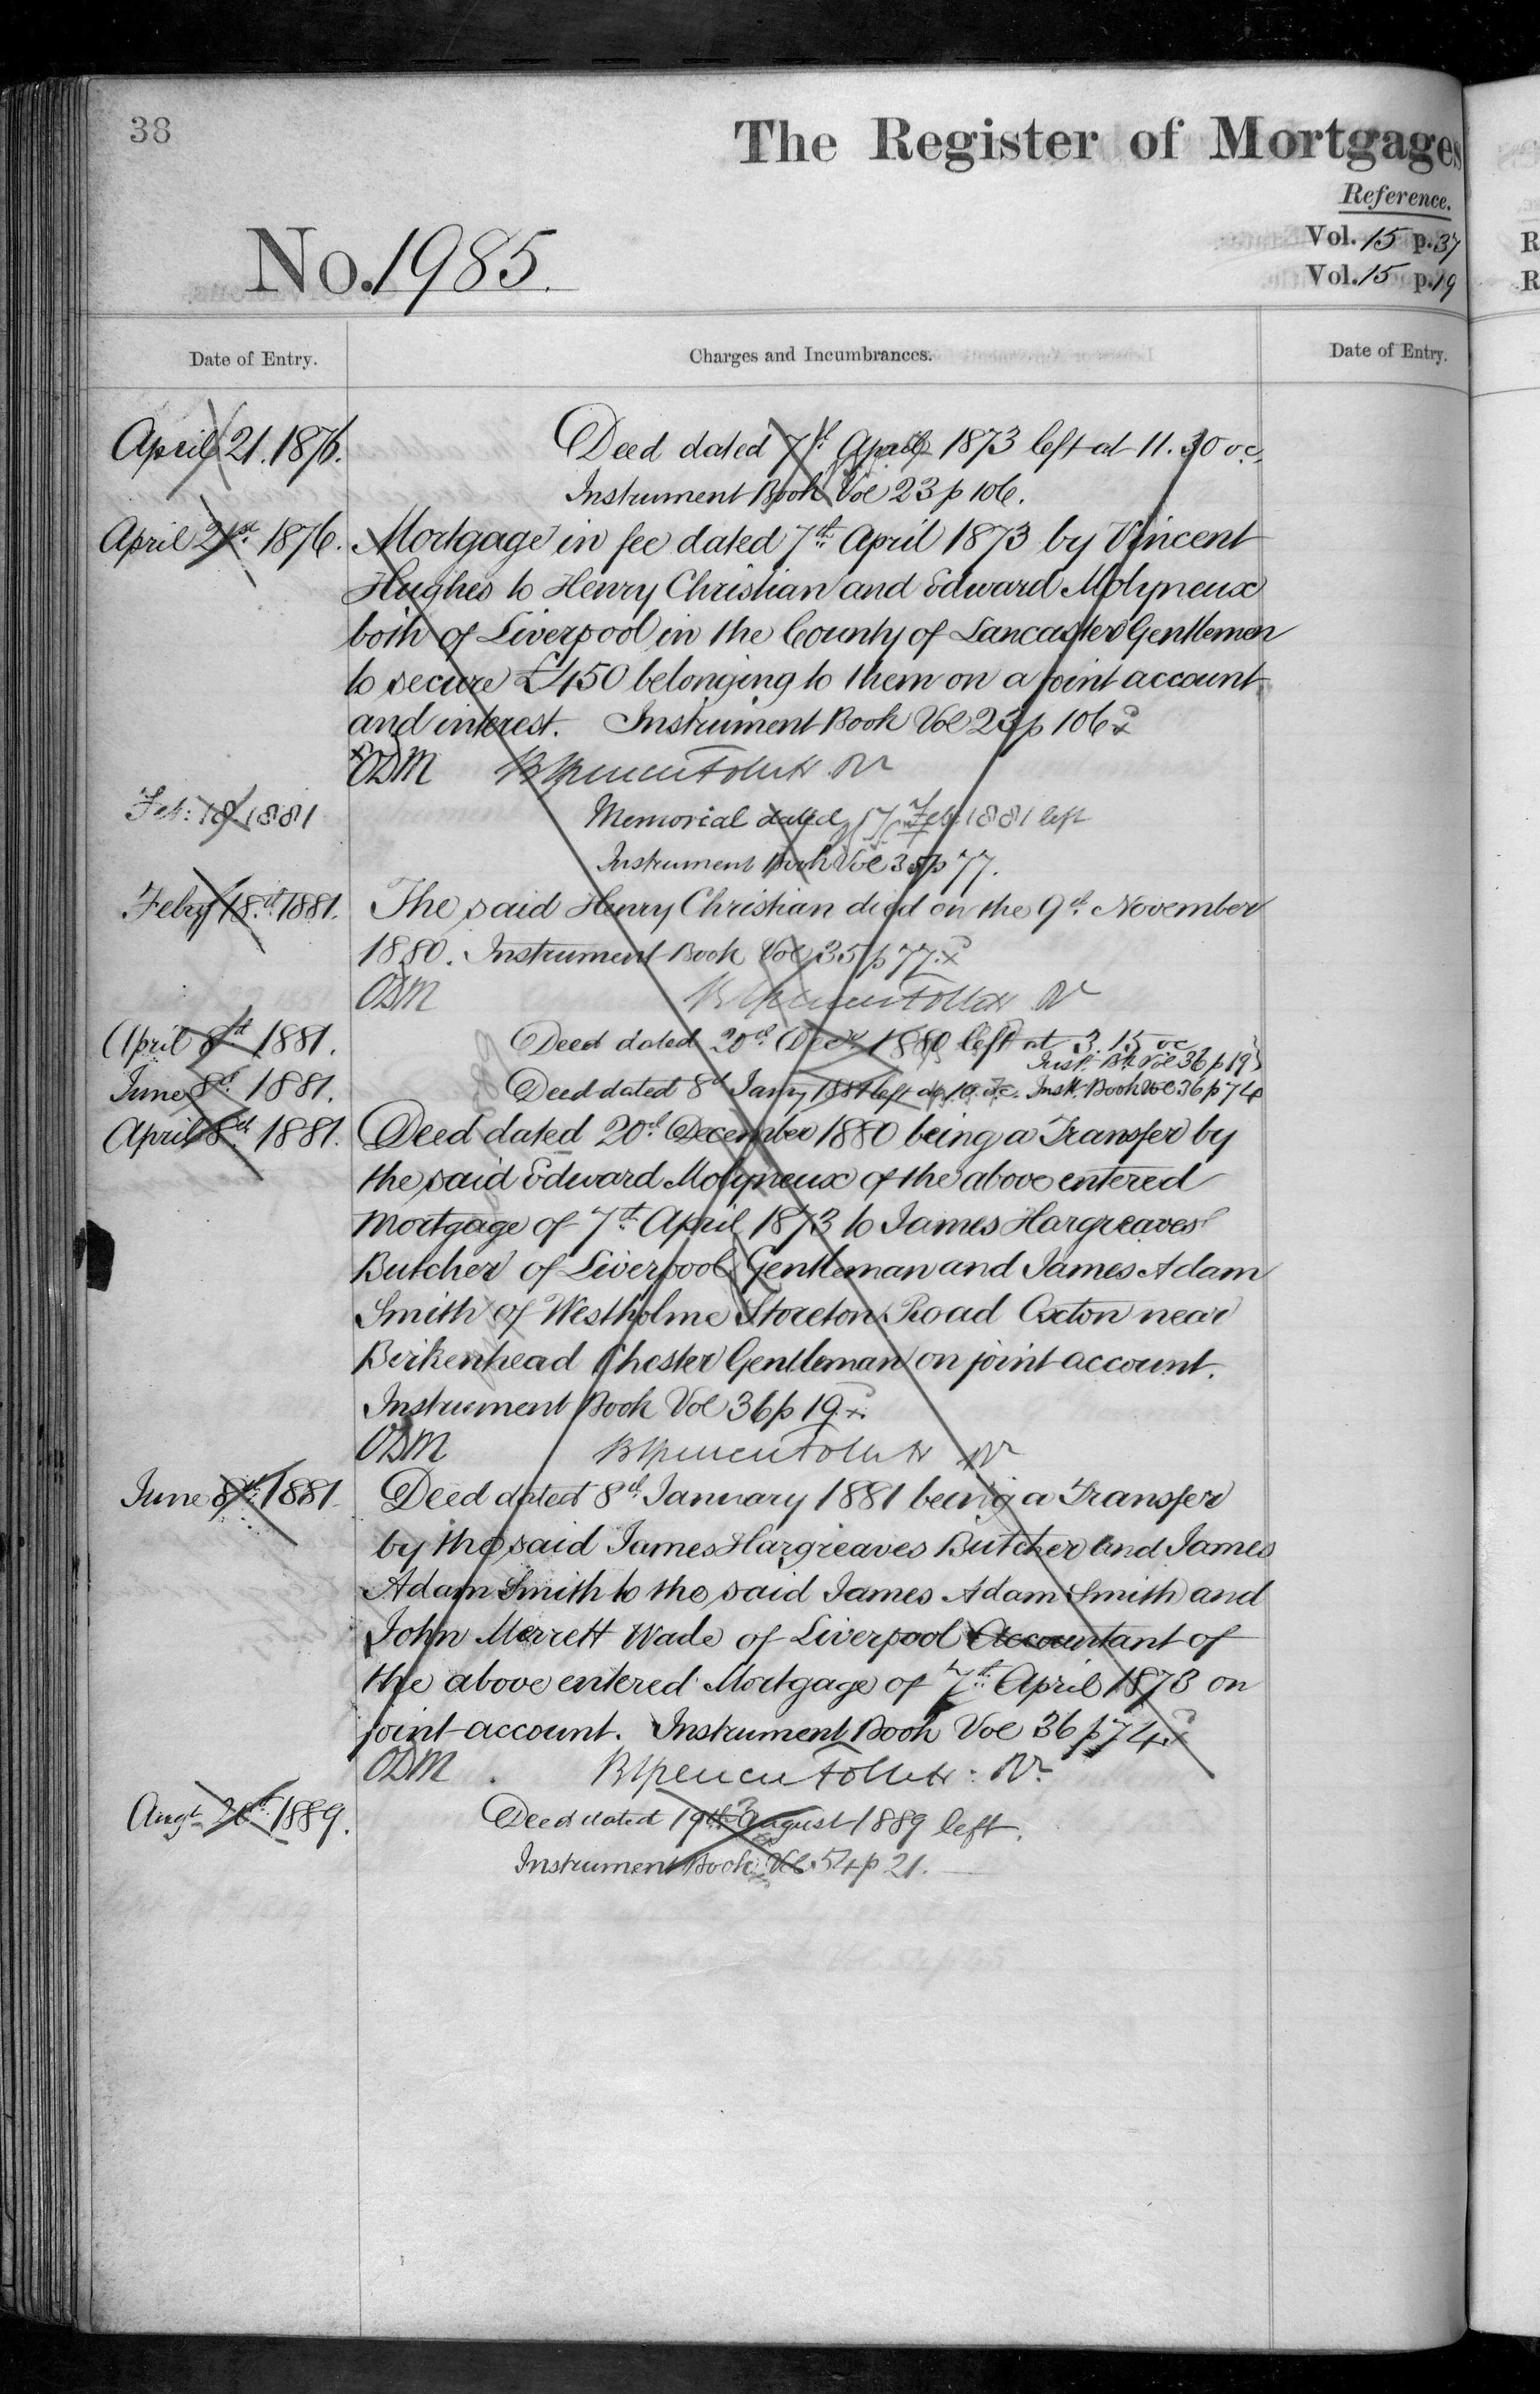 38
The Register of Mortgages
Reference.
No. 1985.
Vol. 15 p. 37
Vol. 15 p. 19
Date of Entry. Charges and Incumbrances. Date of Entry.
April 21. 1876. Deed dated 7th April 1873 left at 11.30 oc.
Instrument Book Vol 23 p 106.
April 21st 1876. Mortgage in fee dated 7th April 1873 by Vincent
Hughes to Henry Christian and Edward Molyneux
both of Liverpool in the County of Lancaster Gentlemen
to secure £450 belonging to them on a joint account
and interest. Instrument Book Vol 23 p 106
ODM
Feb: 18 1881 Memorial dated 17 Feb. 1881 left
Instrument Book Vol 35 p 77.
Feby 18th 1881. The said Henry Christian died on the 9th November
1880. Instrument Book Vol 35 p 77.
ODM
April 8th 1881. Deed dated 20th Decr 1880 left at 3.15 oc
Inst. Bk Vol 36 p 19
June 8th 1881. Deed dated 8th Jany 1881 left at 10 oc. Inst. Book Vol 36 p 74
April 8th 1881. Deed dated 20th December 1880 being a Transfer by
the said Edward Molyneux of the above entered
Mortgage of 7th April 1873 to James Hargreaves
Butcher of Liverpool Gentleman and James Adam
Smith of Westholme Storeton Road Oxton near
Birkenhead Chester Gentleman on joint account.
Instrument Book Vol 36 p 19.
ODM
June 8th 1881 Deed dated 8th January 1881 being a Transfer
by the said James Hargreaves Butcher and James
Adam Smith to the said James Adam Smith and
John Merrett Wade of Liverpool Accountant of
the above entered Mortgage of 7th April 1873 on
joint account. Instrument Book Vol 36 p 74.
ODM
Augt 20th 1889. Deed dated 19th August 1889 left.
Instrument Book Vol. 54 p 21.